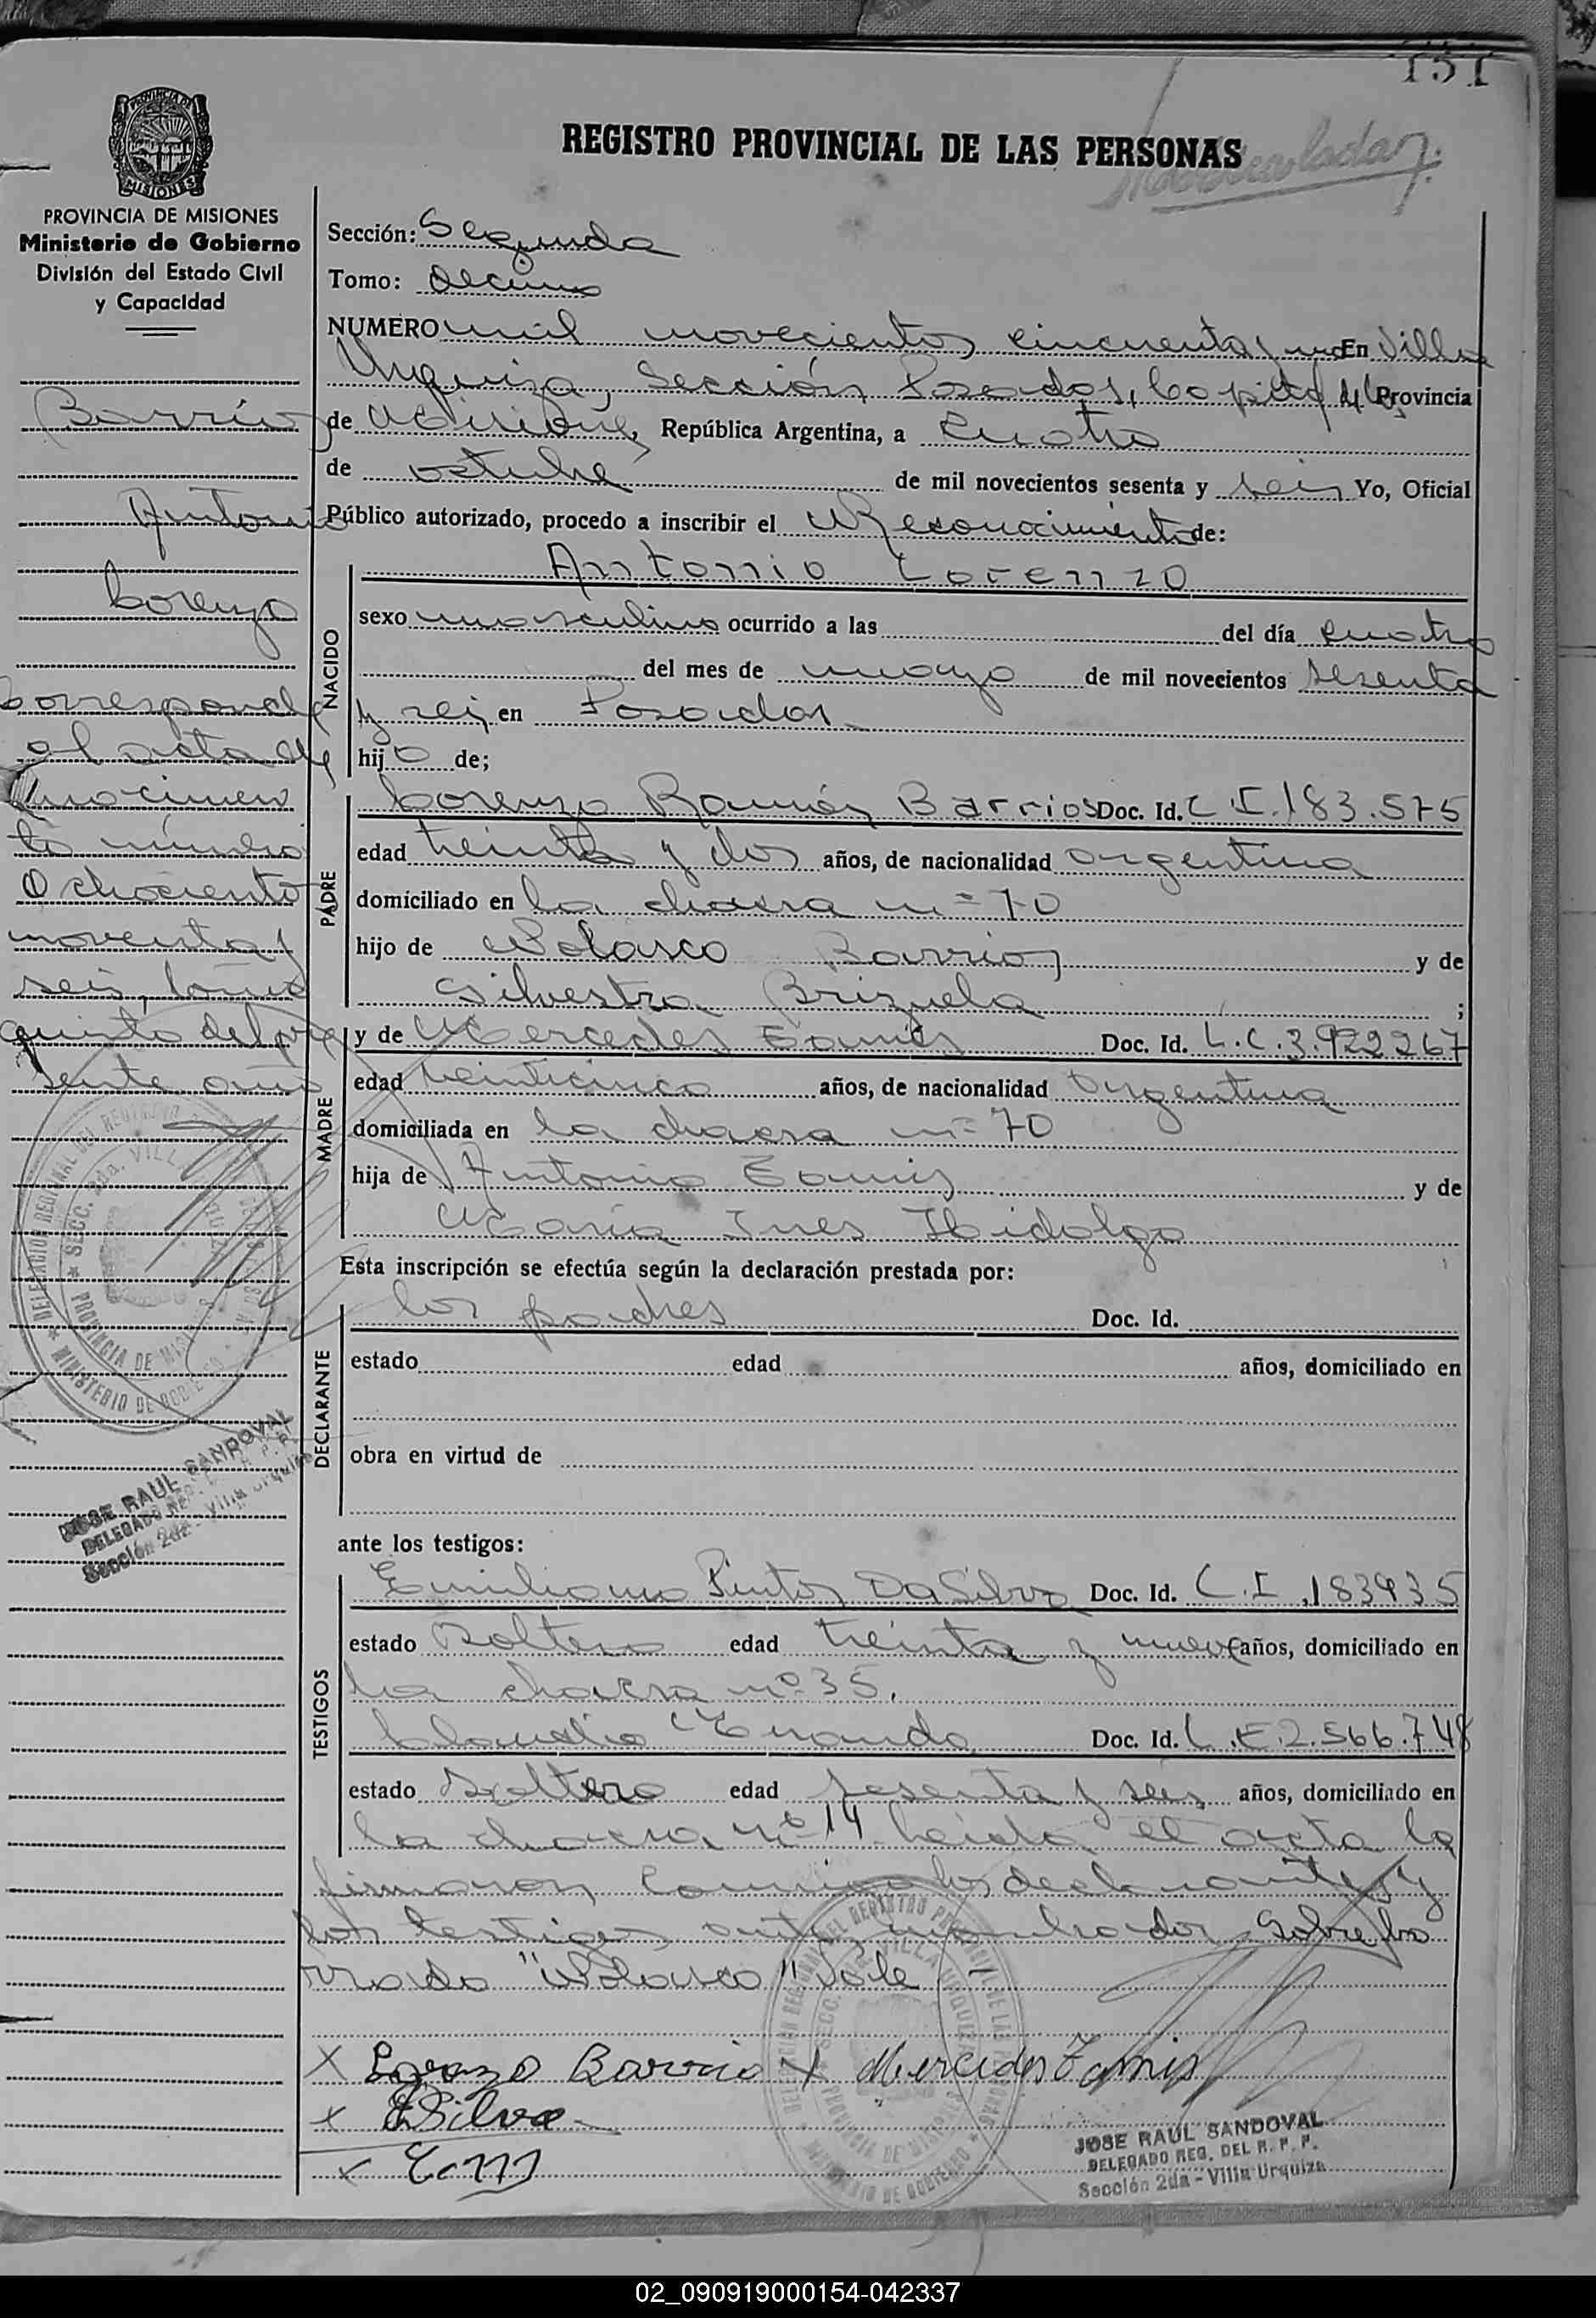 151
REGISTRO PROVINCIAL DE LAS PERSONAS
PROVINCIA DE MISIONES
Ministerio de Gobierno
División del Estado Civil
y Capacidad
Sección: Segunda
Tomo: Decimo
NUMERO mil novecientos cincuenta y uno En Villa
Urquiza, Sección Posadas, Capital de la Provincia
de Misiones, República Argentina, a cuatro
de octubre de mil novecientos sesenta y seis Yo, Oficial
Público autorizado, procedo a inscribir el Reconocimiento de:
Antonio Lorenzo
NACIDO
sexo masculino ocurrido a las del día cuatro
del mes de mayo de mil novecientos sesenta
y seis en Posadas
hijo de;
PADRE
Lorenzo Ramón Barrios Doc. Id. C.I. 183.575
edad treinta y dos años, de nacionalidad argentina
domiciliado en la chacra nº 70
hijo de Nolasco Barrios y de
Silvestra Brizuela ;
MADRE
y de Mercedes Tamis Doc. Id. L.C. 3.922267
edad veinticinco años, de nacionalidad argentina
domiciliada en la chacra nº 70
hija de Antonio Tamis y de
María Ines Hidalgo
Esta inscripción se efectúa según la declaración prestada por:
DECLARANTE
los padres Doc. Id.
estado edad años, domiciliado en
obra en virtud de
ante los testigos:
TESTIGOS
Emiliano Pintos Da Silva Doc. Id. C.I. 183935
estado soltero edad treinta y nueve años, domiciliado en
la chacra nº 35.
Claudio Doc. Id. L.E 2.566.748
estado soltero edad sesenta y seis años, domiciliado en
la chacra nº 14 Leida el acta la
firmaron conmigo los declarantes y
los testigos antes nombrados, Sobre bo
rrado "Nolasco" Vale
x Lorenzo Barrio x Mercedes Tamis
x DSilva
x
JOSE RAUL SANDOVAL
DELEGADO REG. DEL R. P. P.
Sección 2da - Villa Urquiza
Barrios
Antonio
Lorenzo
Corresponde
al acta de
nacimien
to número
Ochociento
noventa y
seis, tomo
quinto del pre
sente año
JOSE RAUL SANDOVAL
DELEGADO REG. DEL R. P. P.
Sección 2da - Villa Urquiza
02_090919000154-042337